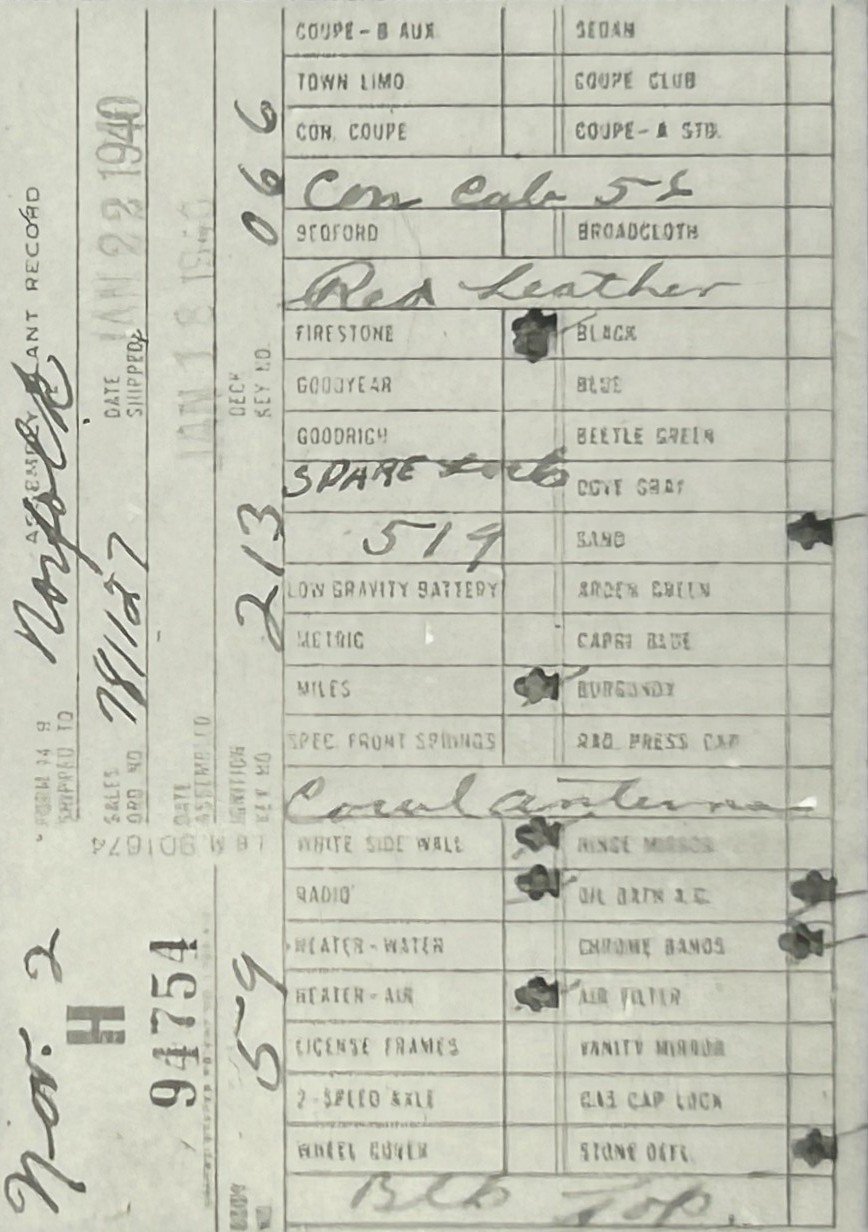 COUPE - B AUX SEDAN
TOWN LIMO COUPE CLUB
CON. COUPE COUPE - A STD.
Con Cab 56
BEDFORD BROADCLOTH
Red Leather
FIRESTONE BLACK
GOODYEAR BLUE
GOODRICH BEETLE GREEN
SPARE COVE GRAY
519 SAND
LOW GRAVITY BATTERY ARDEN GREEN
METRIC CAPRI BLUE
MILES BURGUNDY
SPEC. FRONT SPRINGS RAD. PRESS CAP
Cowl antenna
WHITE SIDE WALL HINGE MIRROR
RADIO OIL BATH A.C.
HEATER - WATER CHROME BANDS
HEATER - AIR AIR FILTER
LICENSE FRAMES VANITY MIRROR
2-SPEED AXLE GAS CAP LOCK
WHEEL COVER STONE DEFL.
Blk Top.
Nov. 2
ASSEMBLY PLANT RECORD
SHIPPED TO Norfolk
H
SALES ORD NO 781127
DATE SHIPPED JAN 22 1940
94754
DATE ASSEMBLED JAN 18 1940
IGNITION KEY NO 213
DECK KEY NO. 066
59